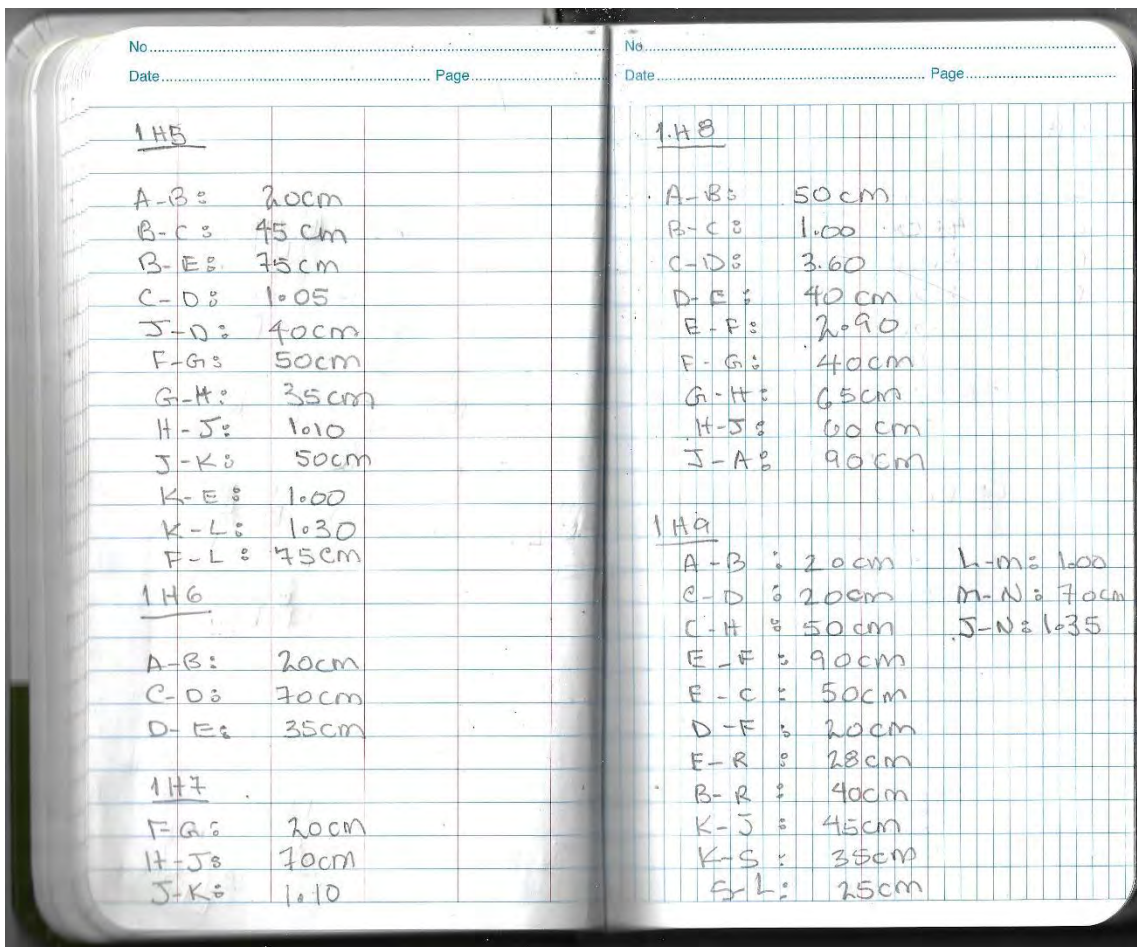 No
Date Page
1H5
A-B: 20cm
B-C: 45 cm
B-E: 75cm
C-D: 1.05
J-D: 40cm
F-G: 50cm
G-H: 35cm
H-J: 1.10
J-K: 50cm
K-E: 1.00
K-L: 1.30
F-L: 75cm
1H6
A-B: 20cm
C-D: 70cm
D-E: 35cm
1H7
F-G: 20cm
H-J: 70cm
J-K: 1.10
No
Date Page
1.H8
A-B: 50cm
B-C: 1.00
C-D: 3.60
D-E: 40cm
E-F: 2.90
F-G: 40cm
G-H: 65cm
H-J: 60cm
J-A: 90cm
1H9
A-B: 20cm L-m: 1.00
C-D: 20cm m-N: 70cm
C-H: 50cm J-N: 1.35
E-F: 90cm
E-C: 50cm
D-F: 20cm
E-R: 28cm
B-R: 40cm
K-J: 45cm
K-S: 35cm
S-L: 25cm